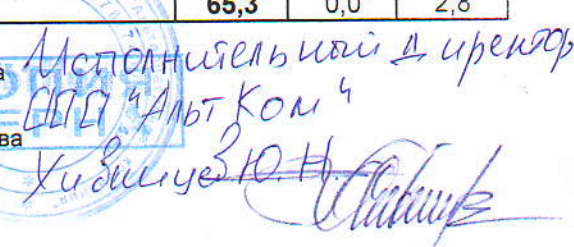 65,3 0,0 2,8
а Исполнительный директор
ООО "АльтКом"
ва
Хивинцев Ю.Н.